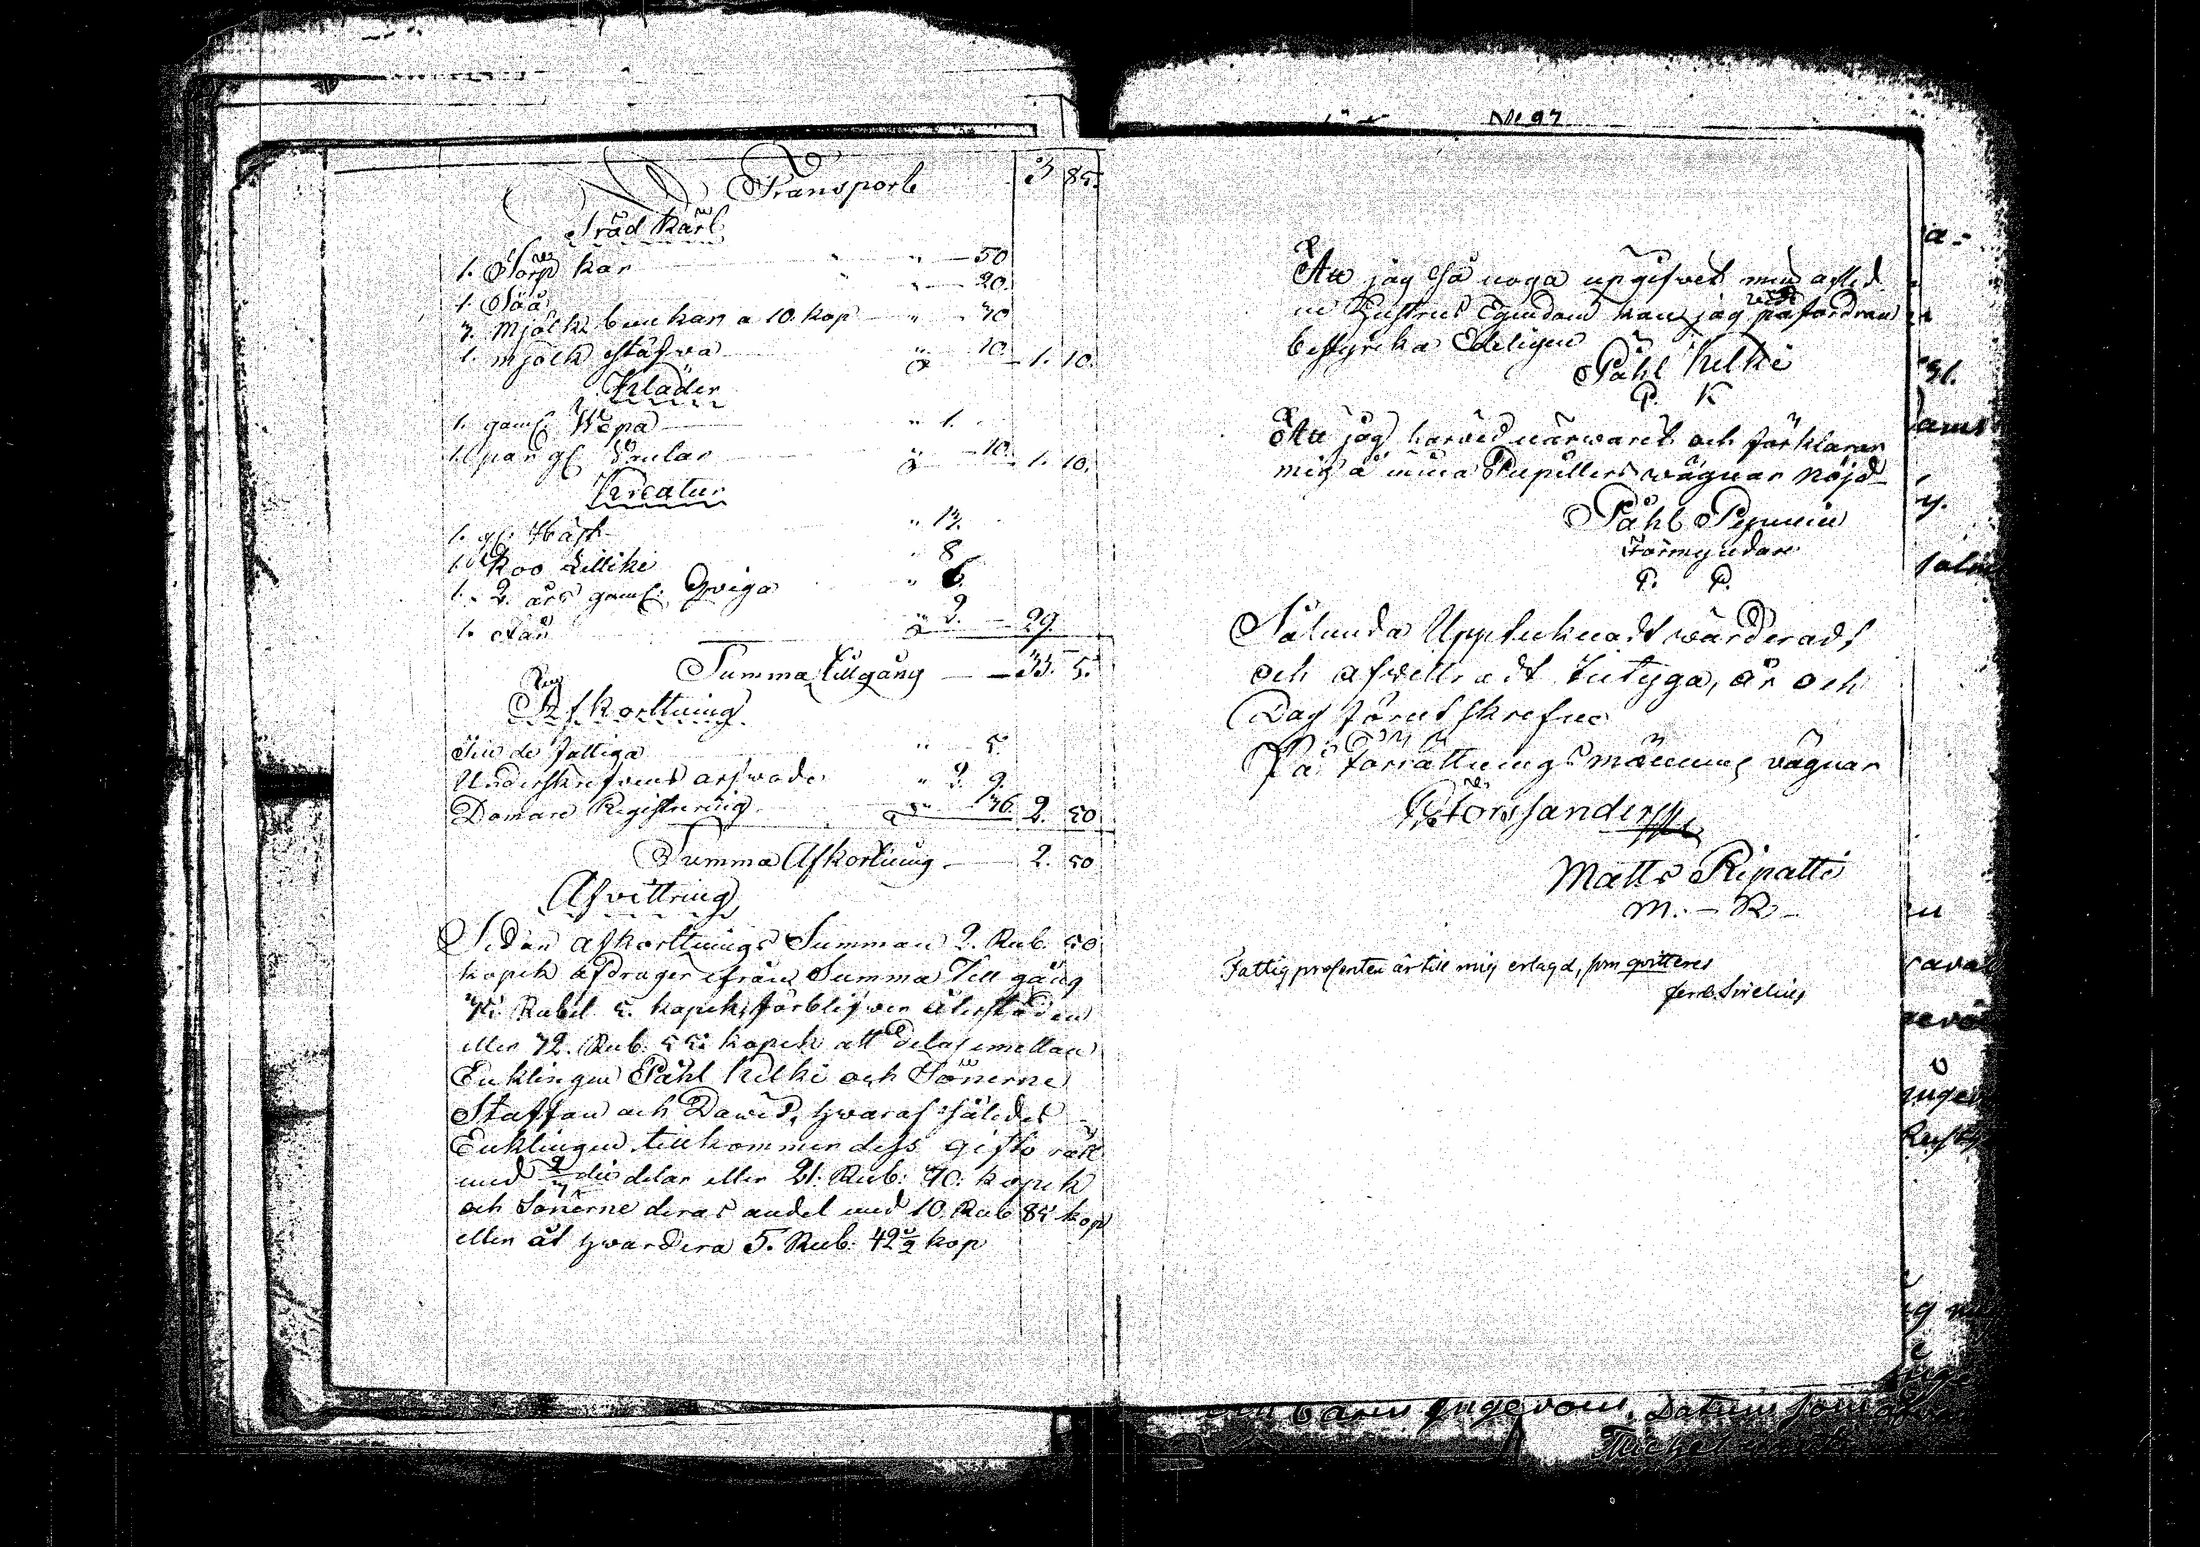 No 97
Transport 3 85.
Träd Kärl
1. Törp kar " — 50
1. Såå " — 20.
3. Mjölk bunkar a 10. kop " — 30
1. mjölk stäfva " 10. — 1. 10.
Kläder
1. gaml: Wepa " 1.
1. par gl: Vantar " — 10. — 1. 10.
Kreatur
1. gl: Häst " 13.
1. Koo Lillike " 8
1. 2 års gaml: Qviga " 6.
1. " 2. — 29.
Summa Tillgång — 35. 5.
Afkorttning
Till de fattiga " 5
Underskrifvens arfwode " 2. 9.
Domare Registrering " 36. 2. 50
Summa Afkortning — 2. 50
Afvittring
Sedan afkorttnings Summan 2. Rub. 50
kopek afdrages ifrån Summa Till gång
35. Rubel 5. kopek, förblifver återstoden
eller 32. Rub. 55. kopek att delas emellan
Enklingen Påhl Kilki och Sönerne
Staffan och Dawid, hwaraf således
Enklingen tillkommer dess gifto rätt
med 2/3 die delar eller 21. Rub: 70. kopek
och Sönerne deras andel med 10. Rub 85 kop
eller åt hwardera 5. Rub. 42½ kop
Att jag så noga upgifvet min aflid
ne Hustrus Egendom kan jag vid påfordran
bestyrcka Edeligen
Påhl Kilki
P. K
Att jag härvid närwarit och förklarar
mig å mina Pupillers wägnar nöjd
Påhl
Förmyndare
P. P.
Sålunda Upptecknadt wärderadt
och afvittradt intyga, år och
Dag förutskrefne
På Förrättningsmännens vägnar
Matts Ripatti
M. — R —
Fattigprocenten är till mig erlagd, som qvitteras
Sirelius